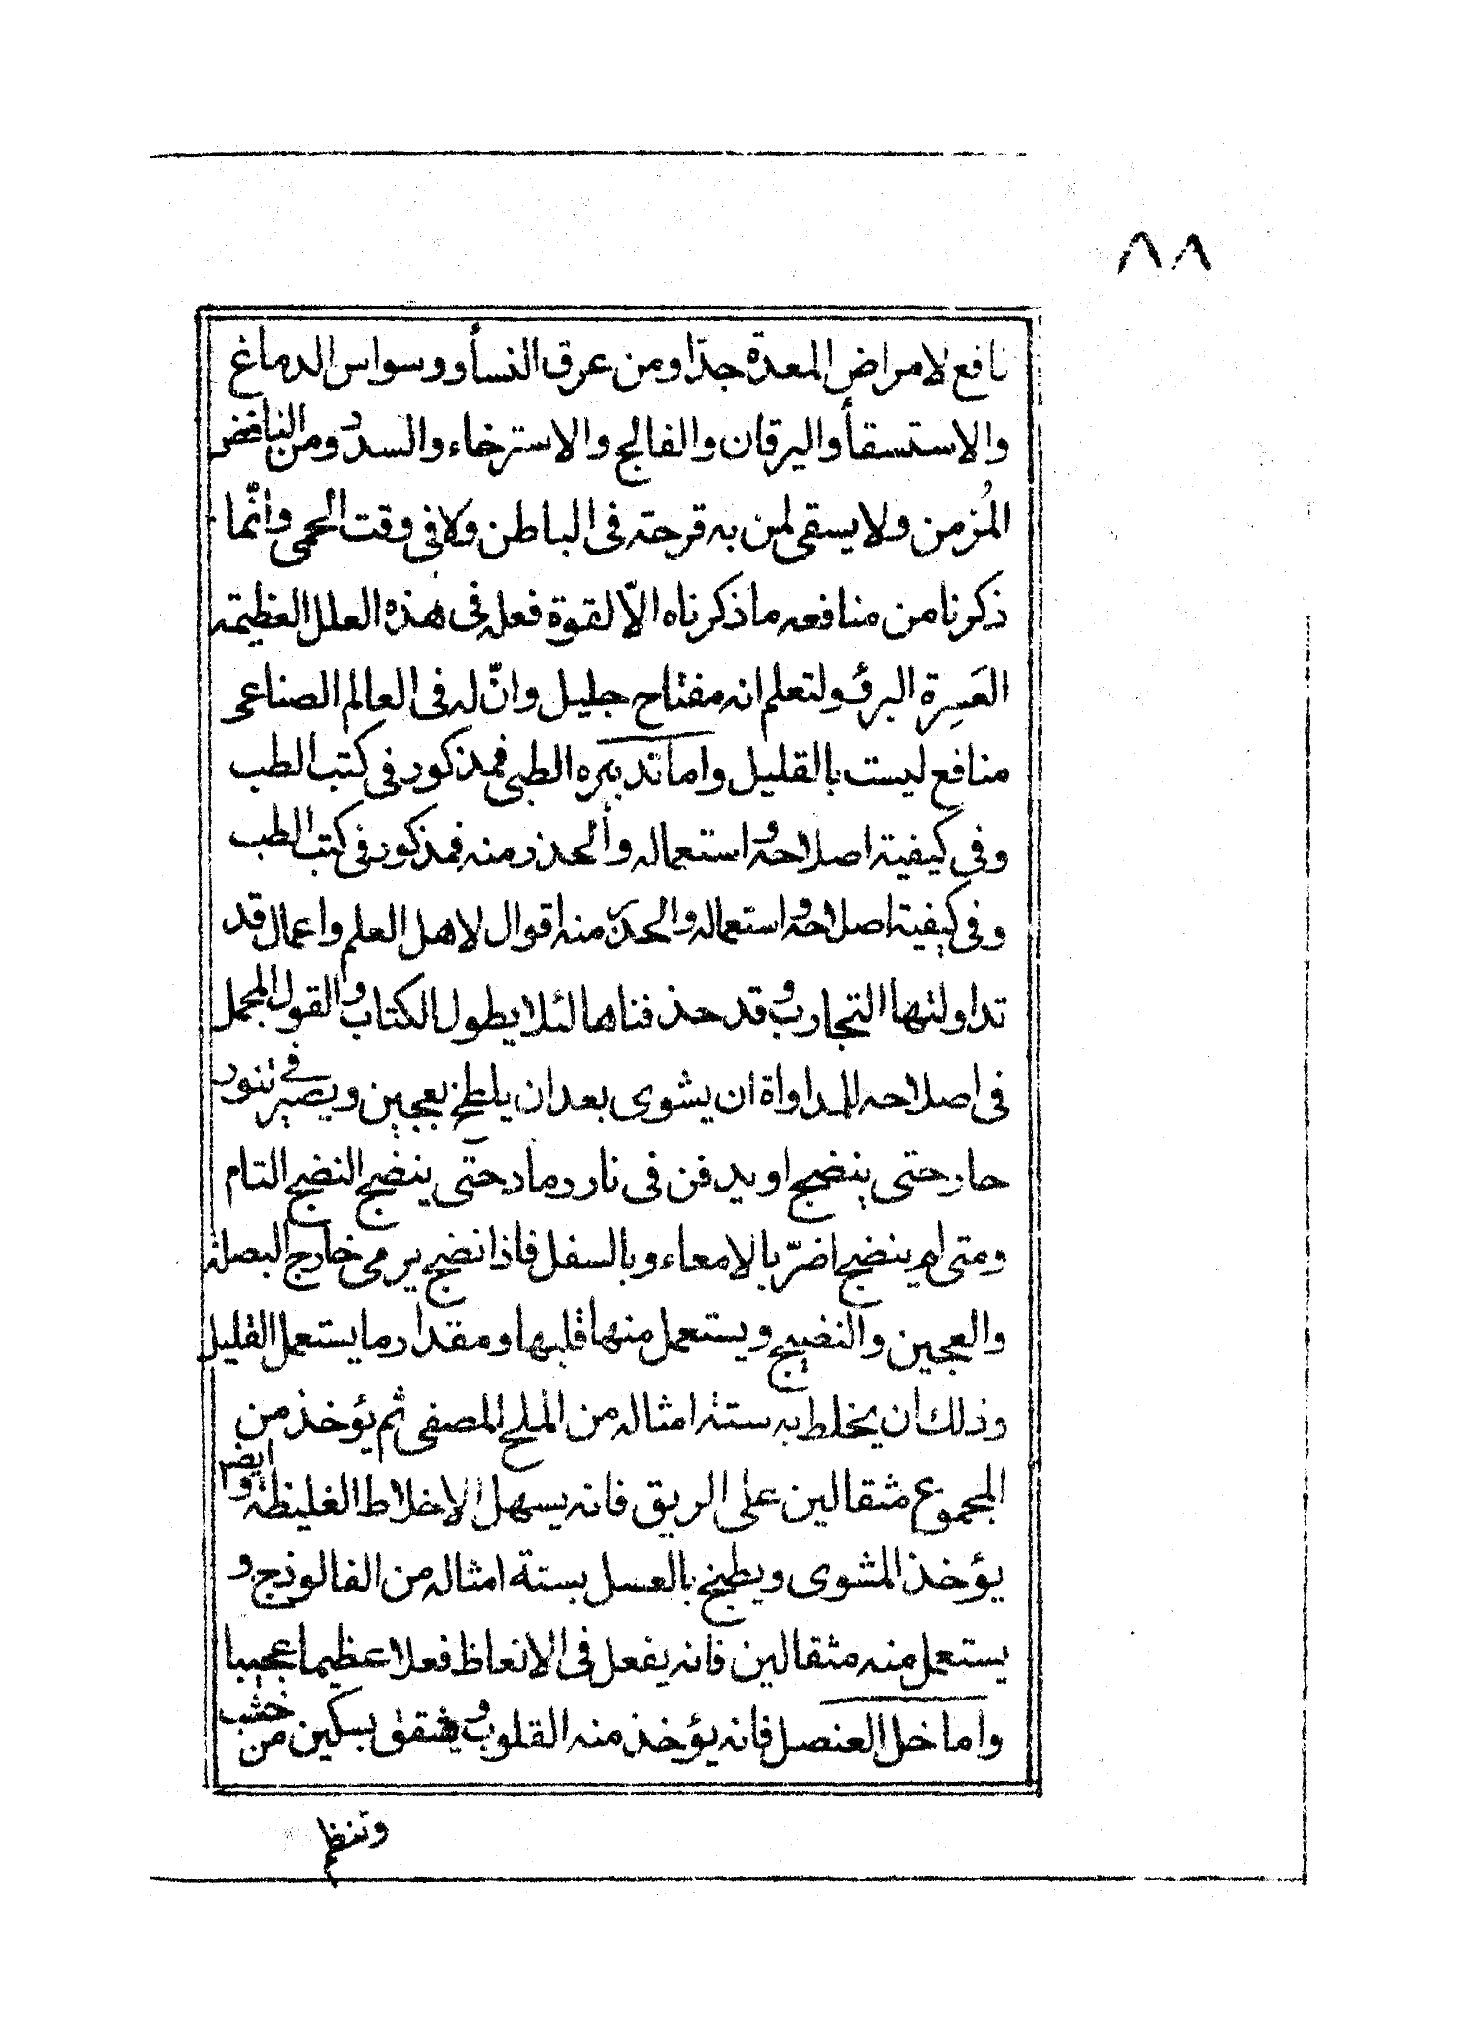 ٨٨
نافع لامراض المعدة جدّا ومن عرق النسأ ووسواس الدماغ
والاستسقأ واليرقان والفالج والاسترخاء والسدر ومن النافض
المُزمن ولا يسقى لمن به قرحته فى الباطن ولا فى وقت الحمى وانّما
ذكرنا من منافعه ما ذكرناه الاّ لقوة فعله فى هذه العلل العظيمة
العَسِرة البرؤ ولتعلم انه مفتاح جليل وانّ له فى العالم الصناعى
منافع ليست بالقليل واما تدبيره الطبى فمذكور فى كتب الطب
وفى كيفية اصلاحه واستعماله وألحذر منه فمذكور فى كتب الطب
وفى كيفية اصلاحه واستعماله والحذر منه اقوال لاهل العلم واعمال قد
تداولتها التجارب وقد حذفناها لئلا يطول الكتاب والقول المجمل
فى اصلاحه للمداواة ان يشوى بعد ان يلطخ بعجين ويصير فى تنور
حار حتى ينضج او يدفن فى نار رماد حتّى ينضج النضج التام
ومتى لم ينضج اضرّ بالامعاء وبالسفل فاذا نضج يرمى خارج البصلة
والعجين والنضيج ويستعمل منها قلبها ومقدار ما يستعمل القليل
وذلك ان يخلط به ستة امثاله من الملح المصفى ثم يؤخذ من
المجموع مثقالين على الريق فانه يسهل الاخلاط الغليظة وايضا
يؤخذ المشوى ويطبخ بالعسل بستة امثاله من الفالوذج و
يستعمل منه مثقالين فانه يفعل فى الانعاظ فعلا عظيما عجيبا
واما خل العنصل فانه يؤخذ منه القلوب ويشقق بسكين من خشب
وتنظم